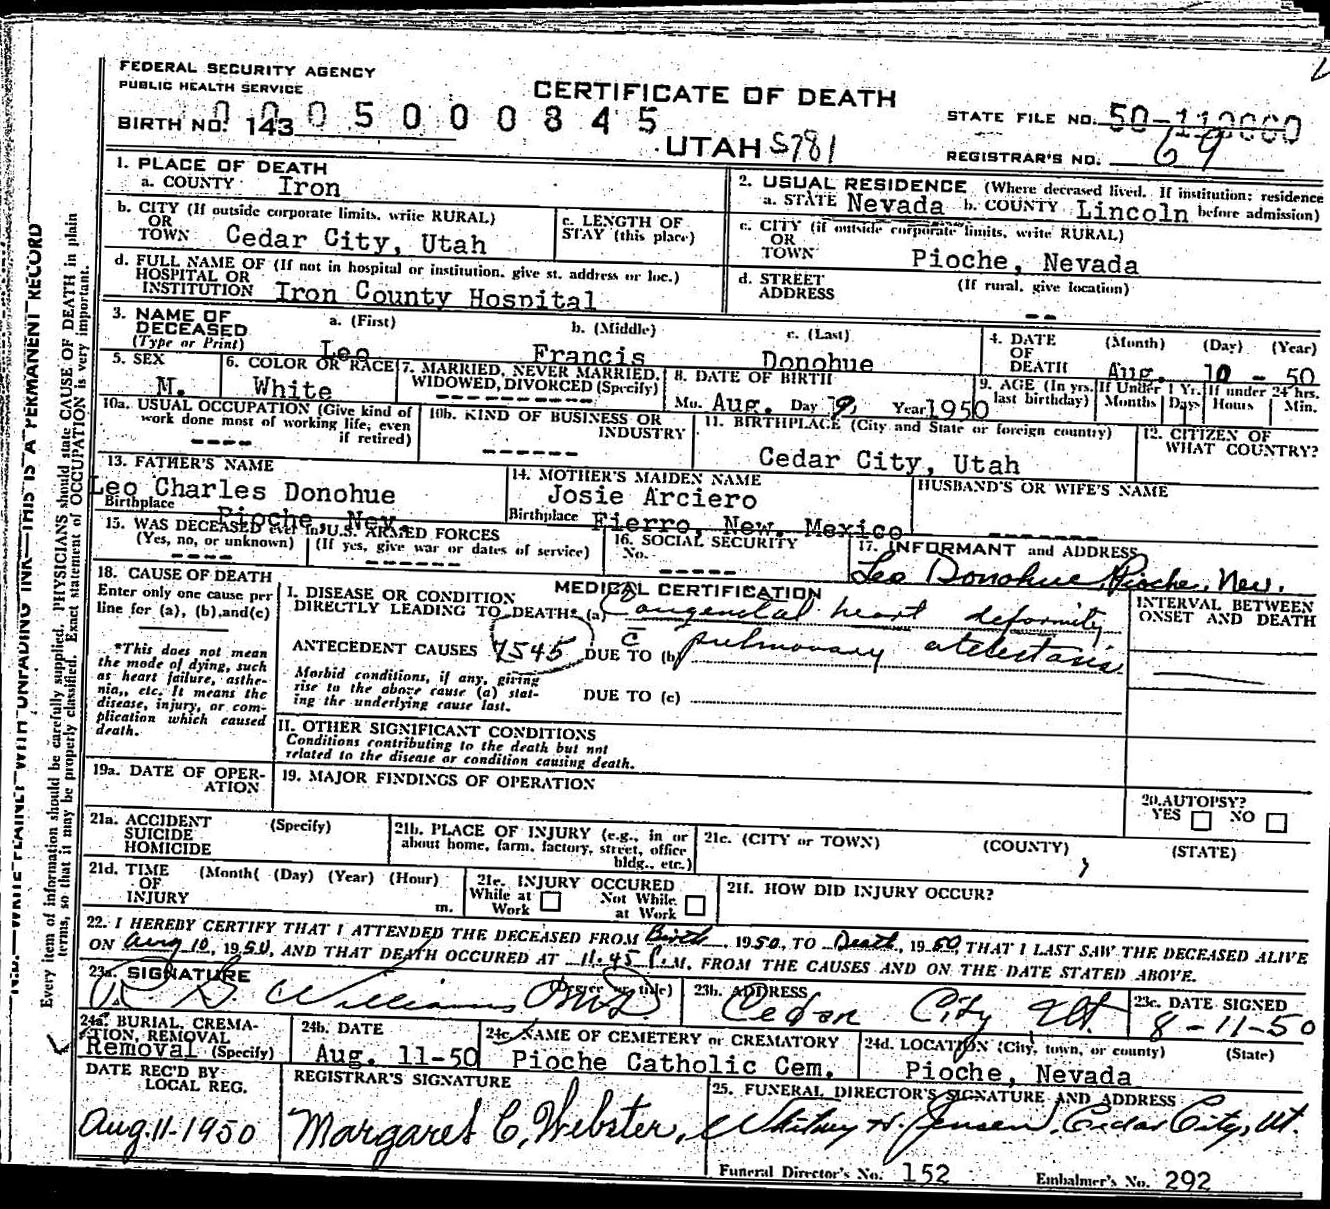 FEDERAL SECURITY AGENCY
PUBLIC HEALTH SERVICE
CERTIFICATE OF DEATH
BIRTH NO. 143 0005000845
UTAH S781
STATE FILE NO. 50-110060
REGISTRAR'S NO. 69
1. PLACE OF DEATH
a. COUNTY Iron
2. USUAL RESIDENCE (Where deceased lived. If institution: residence
a. STATE Nevada b. COUNTY Lincoln before admission)
b. CITY (If outside corporate limits, write RURAL)
OR
TOWN Cedar City, Utah
c. LENGTH OF
STAY (this place)
c. CITY (if outside corporate limits, write RURAL)
OR
TOWN Pioche, Nevada
d. FULL NAME OF (If not in hospital or institution, give st. address or loc.)
HOSPITAL OR
INSTITUTION Iron County Hospital
d. STREET (If rural, give location)
ADDRESS --
3. NAME OF DECEASED (Type or Print)
a. (First) b. (Middle) c. (Last)
Leo Francis Donohue
4. DATE OF DEATH (Month) (Day) (Year)
Aug. 10 - 50
5. SEX
M.
6. COLOR OR RACE
White
7. MARRIED, NEVER MARRIED,
WIDOWED, DIVORCED (Specify)
8. DATE OF BIRTH
Mo. Aug. Day 9, Year 1950
9. AGE (In yrs. last birthday)
If Under 1 Yr. Months Days
If under 24 hrs. Hours Min.
10a. USUAL OCCUPATION (Give kind of
work done most of working life, even
if retired)
----
10b. KIND OF BUSINESS OR
INDUSTRY
------
11. BIRTHPLACE (City and State or foreign country)
Cedar City, Utah
12. CITIZEN OF
WHAT COUNTRY?
13. FATHER'S NAME
Leo Charles Donohue
Birthplace Pioche, Nev.
14. MOTHER'S MAIDEN NAME
Josie Arciero
Birthplace Fierro, New Mexico
HUSBAND'S OR WIFE'S NAME
-------
15. WAS DECEASED ever in U.S. ARMED FORCES
(Yes, no, or unknown) (If yes, give war or dates of service)
---- ------
16. SOCIAL SECURITY
No. -----
17. INFORMANT and ADDRESS
Leo Donohue Pioche, Nev.
18. CAUSE OF DEATH
Enter only one cause per
line for (a), (b), and (c)
*This does not mean
the mode of dying, such
as heart failure, asthe-
nia,, etc. It means the
disease, injury, or com-
plication which caused
death.
MEDICAL CERTIFICATION
I. DISEASE OR CONDITION
DIRECTLY LEADING TO DEATH* (a) Congenital heart deformity
ANTECEDENT CAUSES 7545 DUE TO (b) c̄ pulmonary atelectasis
Morbid conditions, if any, giving
rise to the above cause (a) stat-
ing the underlying cause last.
DUE TO (c)
INTERVAL BETWEEN
ONSET AND DEATH
II. OTHER SIGNIFICANT CONDITIONS
Conditions contributing to the death but not
related to the disease or condition causing death.
19a. DATE OF OPER-
ATION
19. MAJOR FINDINGS OF OPERATION
20. AUTOPSY?
YES NO
21a. ACCIDENT (Specify)
SUICIDE
HOMICIDE
21b. PLACE OF INJURY (e.g., in or
about home, farm, factory, street, office
bldg., etc.)
21c. (CITY or TOWN) (COUNTY) (STATE)
21d. TIME (Month( (Day) (Year) (Hour)
OF
INJURY m.
21e. INJURY OCCURED
While at Work Not While at Work
21f. HOW DID INJURY OCCUR?
22. I HEREBY CERTIFY THAT I ATTENDED THE DECEASED FROM Birth, 1950, TO Death, 1950, THAT I LAST SAW THE DECEASED ALIVE
ON Aug 10, 1950, AND THAT DEATH OCCURED AT 11:45 P.M. FROM THE CAUSES AND ON THE DATE STATED ABOVE.
23a. SIGNATURE (Degree or title)
R G Williams M.D.
23b. ADDRESS
Cedar City Ut.
23c. DATE SIGNED
8-11-50
24a. BURIAL, CREMA-
TION, REMOVAL
Removal (Specify)
24b. DATE
Aug. 11-50
24c. NAME OF CEMETERY or CREMATORY
Pioche Catholic Cem.
24d. LOCATION (City, town, or county) (State)
Pioche, Nevada
DATE REC'D BY
LOCAL REG.
Aug. 11-1950
REGISTRAR'S SIGNATURE
Margaret C. Webster,
25. FUNERAL DIRECTOR'S SIGNATURE AND ADDRESS
Whitney H. Jensen, Cedar City, Ut.
Funeral Director's No. 152 Embalmer's No. 292
N.B.—WRITE PLAINLY WITH UNFADING INK—THIS IS A PERMANENT RECORD
Every item of information should be carefully supplied. PHYSICIANS should state CAUSE OF DEATH in plain
terms, so that it may be properly classified. Exact statement of OCCUPATION is very important.